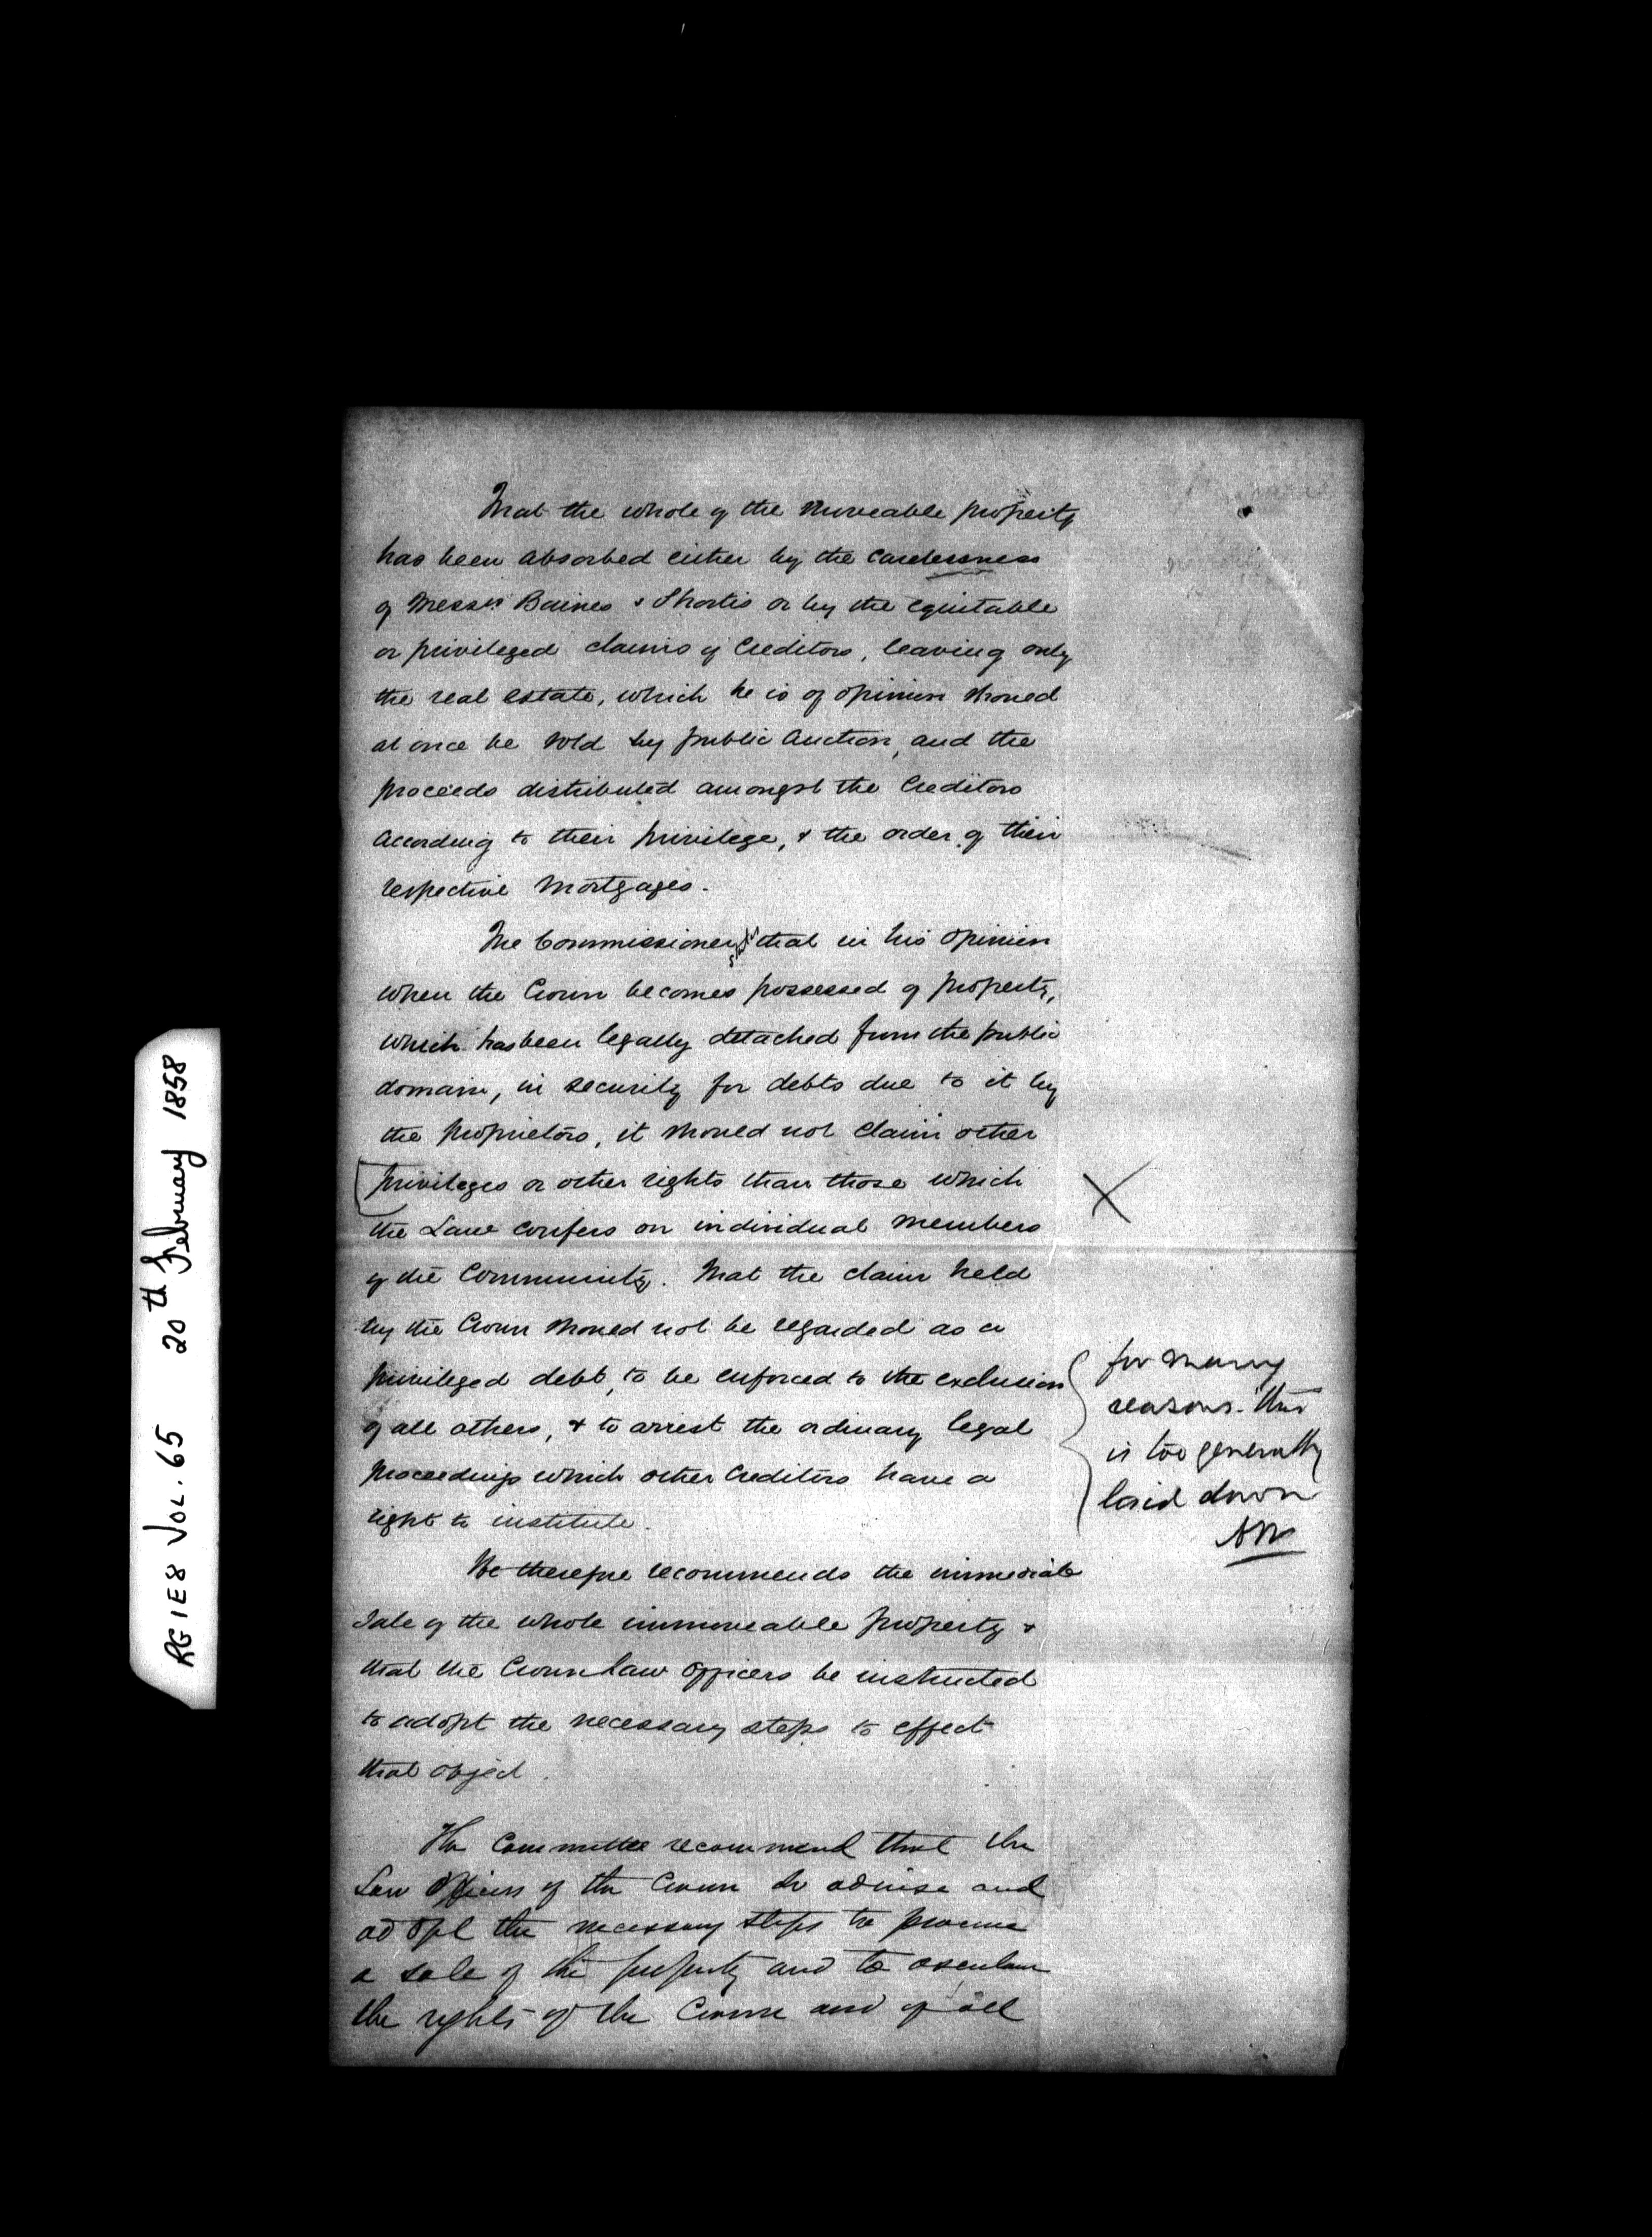 That the whole of the Moveable property
has been absorbed either by the carelessness
of Messrs Baines & Shortis or by the equitable
or privileged claims of Creditors, leaving only
the real estate, which he is of opinion should
at once be sold by public Auction, and the
proceeds distributed amongst the Creditors
according to their privilege, & the order of their
respective Mortgages.
The Commissioner states that in his opinion
when the Crown becomes possessed of property,
which has been legally detached from the public
domain, in security for debts due to it by
the proprietors, it should not claim other
privileges or other rights than those which
the Law confers on individual members
of the Community. That the claim held
by the Crown should not be regarded as a
privileged debt, to be enforced to the exclusion
of all others, & to arrest the ordinary legal
proceedings which other Creditors have a
right to institute.
He therefore recommends the immediate
Sale of the whole immoveable property &
that the Crown law Officers be instructed
to adopt the necessary steps to effect
that object.
The Committee recommend that the
Law Officers of the Crown do advise and
adopt the necessary steps to procure
a sale of the property and to ascertain
the rights of the Crown and of all
X
for many
reasons this
is too generally
laid down
RG1E8 VOL. 65 20th February 1858